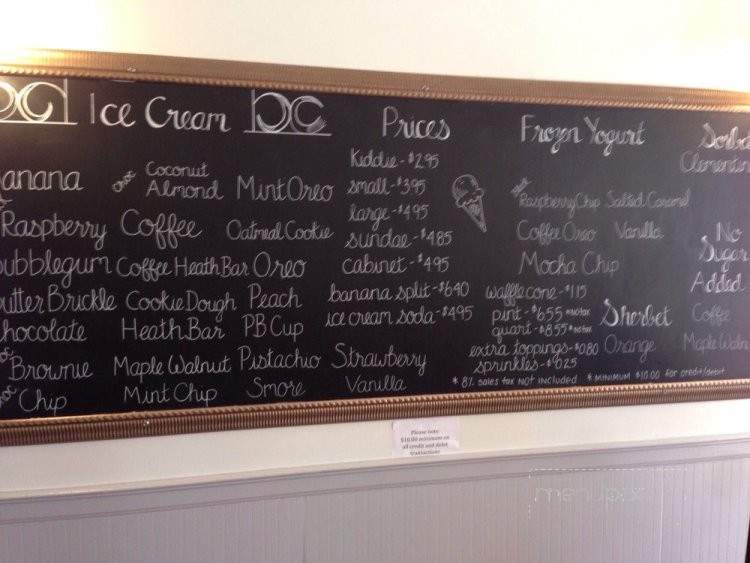 Ice Cream
anana
Raspberry
ubblegum
utter Brickle
hocolate
Brownie
Chip
choc Coconut
Almond
Coffee
Coffee Heath Bar
Cookie Dough
Heath Bar
Maple Walnut
Mint Chip
Mint Oreo
Oatmeal Cookie
Oreo
Peach
PB Cup
Pistachio
Smore
Strawberry
Vanilla
Prices
Kiddie - $2.95
small - $3.95
large - $4.95
sundae - $4.85
cabinet - $4.95
banana split - $6.40
ice cream soda - $4.95
waffle cone - $1.15
pint - $6.55 *no tax
quart - $8.55 *no tax
extra toppings - $0.80
sprinkles - $0.25
* 8% sales tax NOT INCLUDED * MINIMUM $10.00 for credit/debit
Frozen Yogurt
Raspberry Chip
Salted Caramel
Coffee Oreo
Vanilla
Mocha Chip
Sherbet
Orange
Sorbe
Clementin
No
Sugar
Added
Coffee
Maple Waln
Please note
$10.00 minimum on
all credit and debit
transactions
menupix